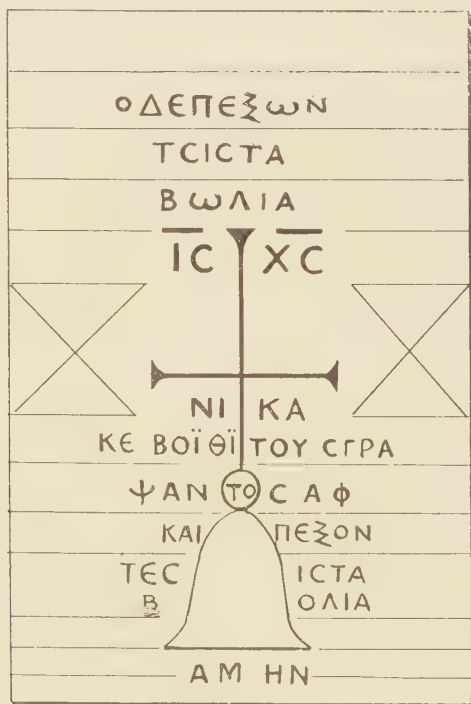 ΟΔΕΠΕξωΝ
ΤCΙCΤΑ
ΒωΛΙΑ
ΙC ΧC
ΝΙ ΚΑ
ΚΕ ΒΟΪΘΪ ΤΟΥ CΓΡΑ
ΨΑΝ ΤΟ C ΑΦ
ΚΑΙ ΠΕξΟΝ
ΤΕC ΙCΤΑ
Β ΟΛΙΑ
ΑΜ ΗΝ